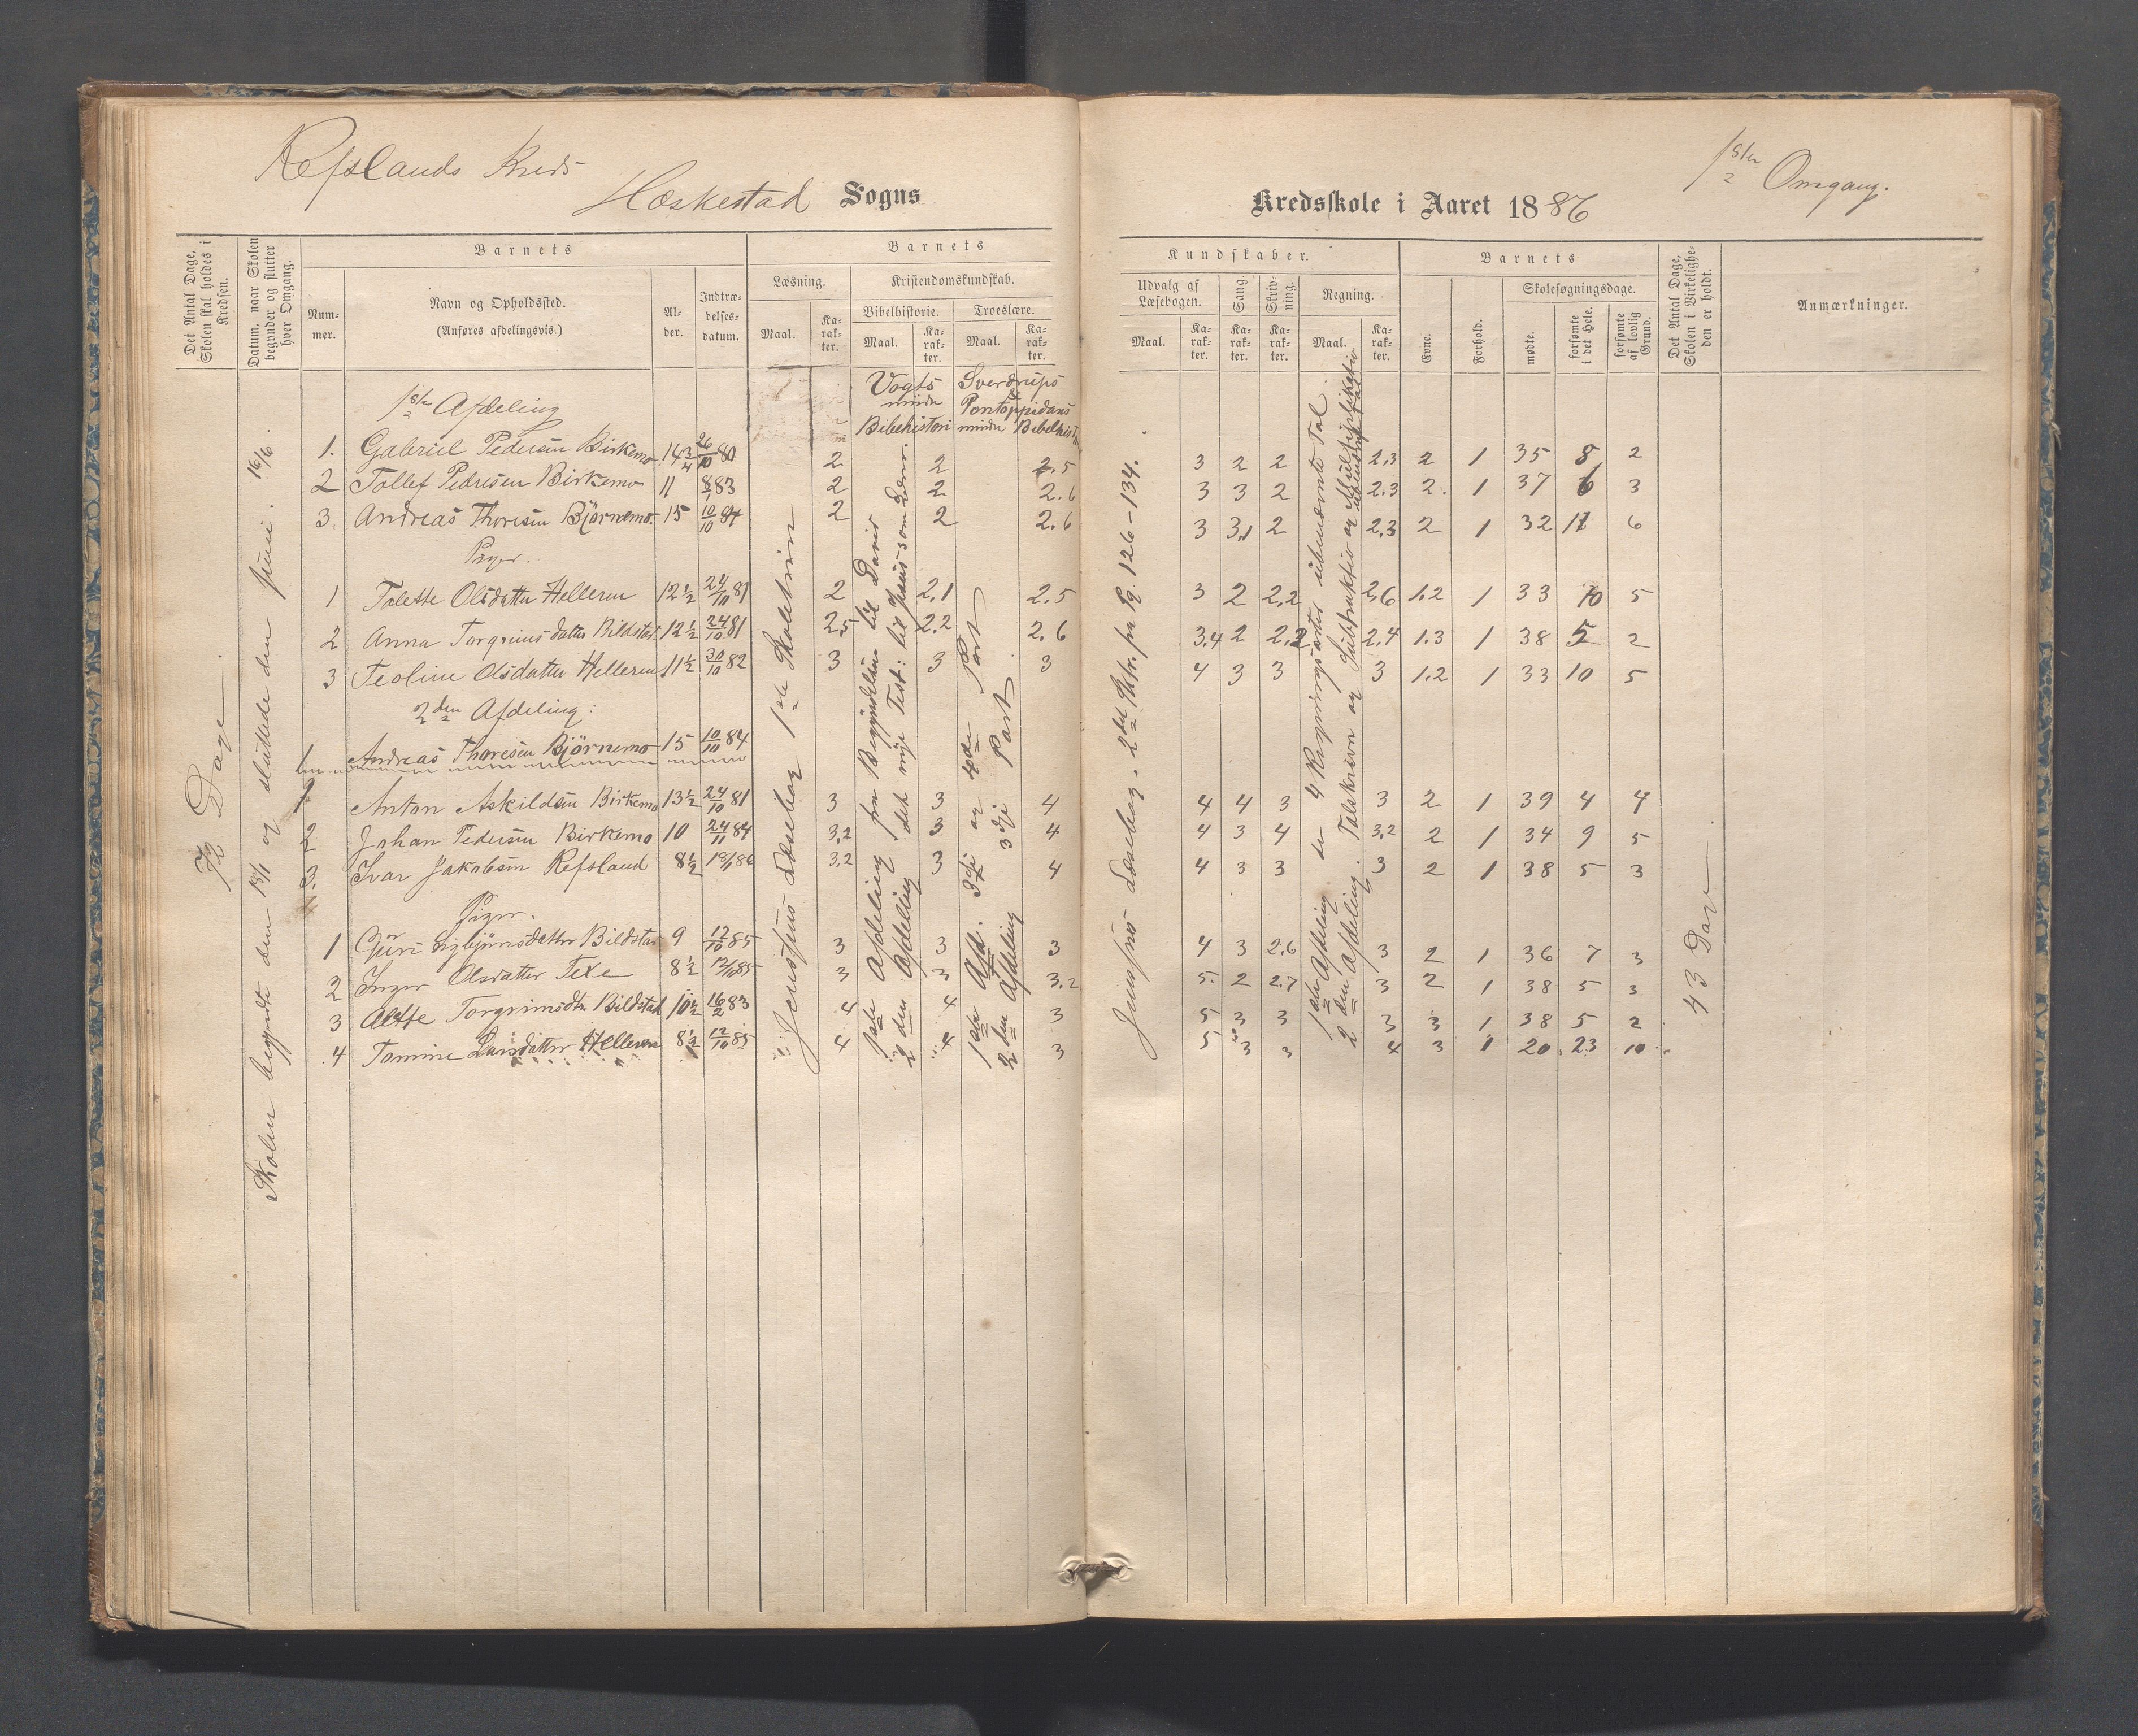 Refslands Kreds
Heskestad Sogns
Kredsskole i Aaret 1886
1ste Omgang.
Det Antal Dage, Skolen skal holdes i Kredsen.
Datum, naar Skolen begynder og slutter hver Omgang.
Barnets
Nummer.
Navn og Opholdssted.
(Anføres afdelingsvis.)
Alder.
Indtrædelsesdatum.
Barnets
Læsning.
Maal.
Karakter.
Kristendomskundskab.
Bibelhistorie.
Maal.
Karakter.
Troeslære.
Maal.
Karakter.
Kundskaber.
Udvalg af Læsebogen.
Maal.
Karakter.
Sang.
Karakter.
Skrivning.
Karakter.
Regning.
Maal.
Karakter.
Barnets
Evne.
Forhold.
Skolesøgningsdage.
mødte.
forsømte i det Hele.
forsømte af lovlig Grund.
Det Antal Dage, Skolen i Virkeligheden er holdt.
Anmærkninger.
72 Dage.
Skolen begyndte den 18/1 og sluttede den juni. 16/6.
1ste Afdeling
Vogts mindre Bibelhistori
Sverdrups Pontoppidans mindre
1. Gabriel Pedersen Birkemo 14 3/4 26/10 80 2 2 2.5 3 2 2 2.3 2 1 35 8 2
2 Tollef Pedersen Birkemo 11 83 2 2 2.6 3 3 2 2.3 2. 1 37 6 3
3. Andreas Thoresen Björnemo. 15 10/10 84 2 2 2.6 3 3,1 2 2,3 2 1 32 11 6
1 Talette Olsdatter Helleren 12 1/2 24/10 81 2 2.1 2.5 3 2 2,2 2,6 1.2 1 33 10 5
2 Anna Torgrimsdatter Bildstad 12 1/2 24/10 81 2,5 2.2 2.6 3,4 2 2,2 2,4 1.3 1 38 5 2
3 Teoline Olsdatter Helleren 11 1/2 30/10 82 3 3 3 4 3 3 3 1.2 1 33 10 5
2den Afdeling:
1 Andreas Thoresen Björnemo 15 10/10 84
1 Anton Askildsen Birkemo 13 1/2 24/10 81 3 3 4 4 4 3 3 2 1 39 4 4
2 Johan Pedersen Birkemo 10 24/11 84 3,2 3 4 4 3 4 3,2 2 1 34 9 5
3. Ivar Jakobsen Refsland 8 1/2 18/1 86 3,2 3 4 4 3 3 3 2 1 38 5 3
Piger.
1 Guri Bildstad 9 12/10 85 3 3 3 4 3 2.6 3 2 1 36 7 3
2 Inger Olsdatter Texe 8 1/2 12/10 85 3 3 3.2 5. 2 2.7 3 2 1 38 5 3
3 Alette Torgrimsdtr Bildstad 10 1/2 16/2 83 4 4 3 5 3 3 3 3 1 38 5 2
4 Tomine Larsdatter Helleren 8 1/2 12/10 85 4 4 3 5 3 3 4 3 1 20 23 10
Jenssens Læsebog 1ste Skoletrin
1ste Afdeling fra Begyndelsen til David
2den Afdeling det nye Test: til Jesus som
1ste Afd. 3dje og 4de Part
2den Afdeling 3dje Part
Jenssens Læsebog. 2det Sktr. fra Pg. 126-134.
1ste Afdeling de 4 Regningsarter ubenævnte Tal.
2den Afdeling. Talskrivn og Subtraktio og Multiplikatio
43 Dag